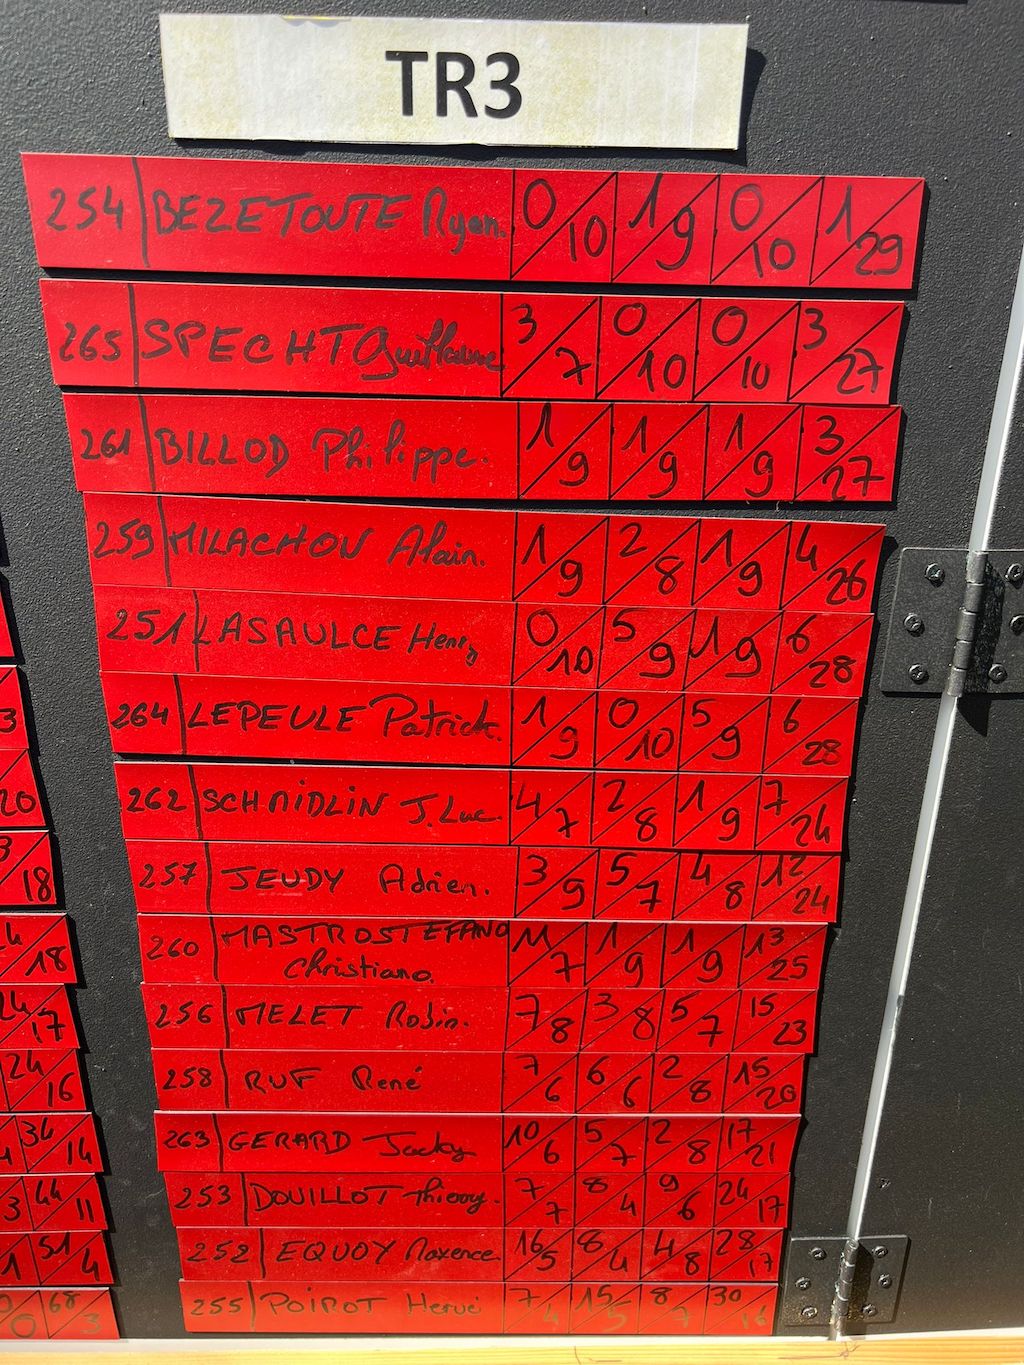 TR3
254 BEZETOUTE Ryan. 0/10 1/9 0/10 1/29
265 SPECHT Guillaume 3/7 0/10 0/10 3/27
261 BILLOD Philippe. 1/9 1/9 1/9 3/27
259 MILACHON Alain. 1/9 2/8 1/9 4/26
251 LASAULCE Henry 0/10 5/9 1/9 6/28
264 LEPEULE Patrick. 1/9 0/10 5/9 6/28
262 SCHMIDLIN J.Luc. 4/7 2/8 1/9 7/24
257 JEUDY Adrien. 3/9 5/7 4/8 12/24
260 MASTROSTEFANO 11/7 1/9 1/9 13/25
Christiano.
256 MELET Robin. 7/8 3/8 5/7 15/23
258 RUF René 7/6 6/6 2/8 15/20
263 GERARD Jacky 10/6 5/7 2/8 17/21
253 DOUILLOT Thierry. 7/7 8/4 9/6 24/17
252 EQUOY Maxence 16/5 8/4 4/8 28/17
255 POIROT Hervé 7/4 15/5 8/7 30/16
3
20
3/18
18
24/17
24/16
34/14
3 44/11
1 51/4
0 68/3